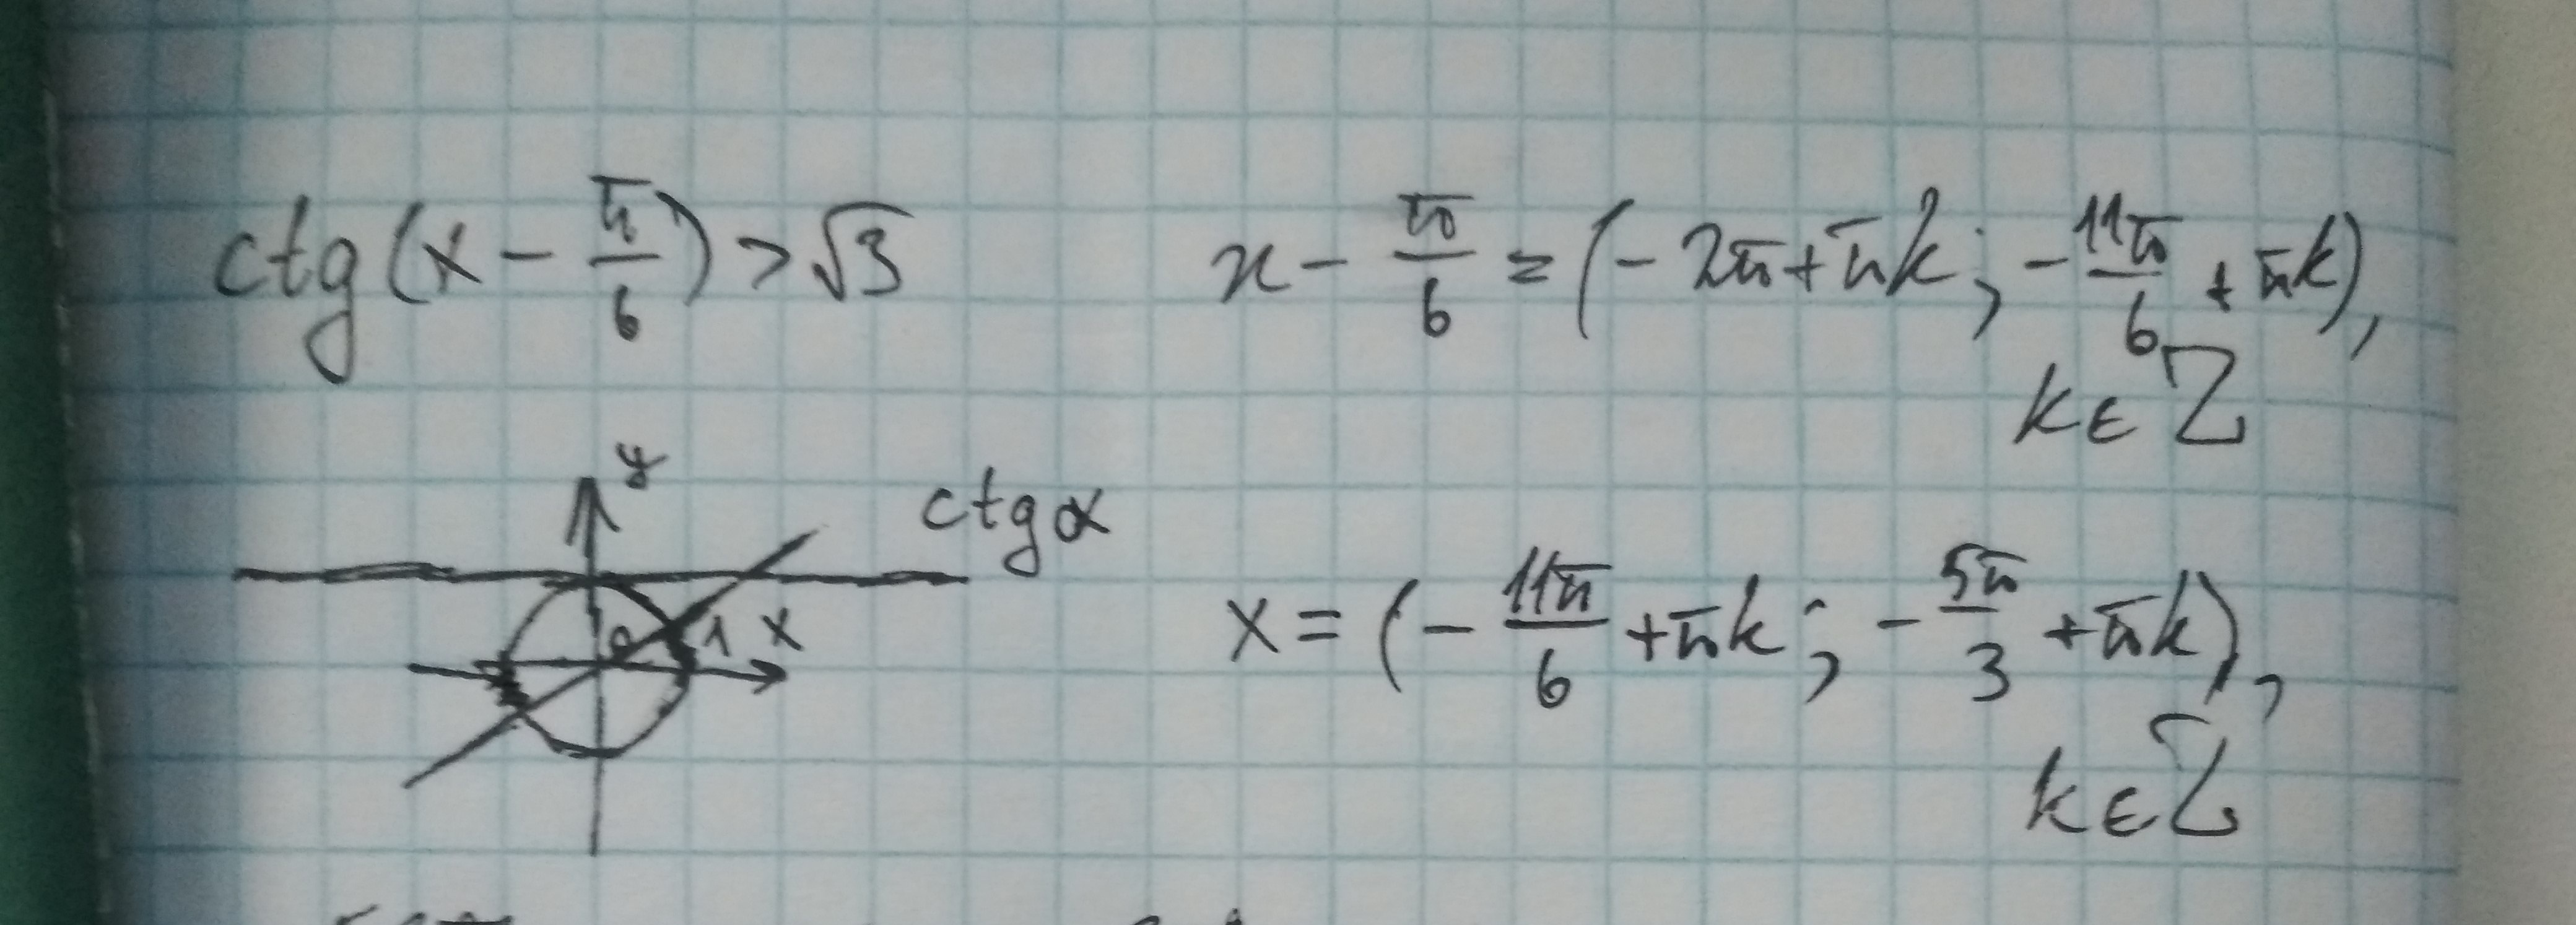 ctg(x - π/6) > √3
x - π/6 = (-2π + πk; -11π/6 + πk),
k ∈ Z
y
ctg α
0 1 x
x = (-11π/6 + πk; -5π/3 + πk),
k ∈ Z